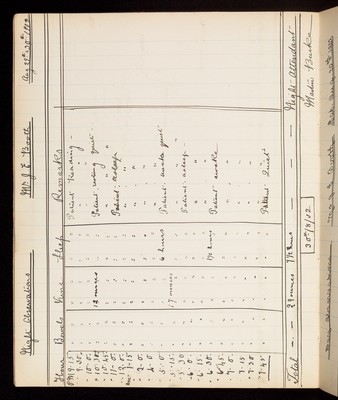 Night Observations Mr J. E. Booth Aug 29th-30th 1902
Hour Bowels Urine Sleep Remarks
P.M 9.15 " " " Patient Reading
" 10.0 " " "
" 10.30 " 12 ounces " Patient resting quiet
" 10.45 " " " "
" 11.0 " " " Patient asleep
" 12.0 " " " "
A.M. 1.15 " " " "
" 2.0 " " " "
" 4.0 " " " "
" 5.0 " " 6 hours Patient awoke quiet
" 5.15 " 17 ounces " "
" 5.30 " " " Patient asleep
" 6.0 " " " "
" 6.15 " " " "
" 6.30 " " 1½ hours Patient awoke
" 6.45 " " " "
" 7.0 " " " "
" 7.15 " " " "
" 7.30 " " " "
" 7.45 " " " Patient Quiet
Total - - 29 ounces 7½ hours - - - Night Attendant
30th/8/02
Martin Burke